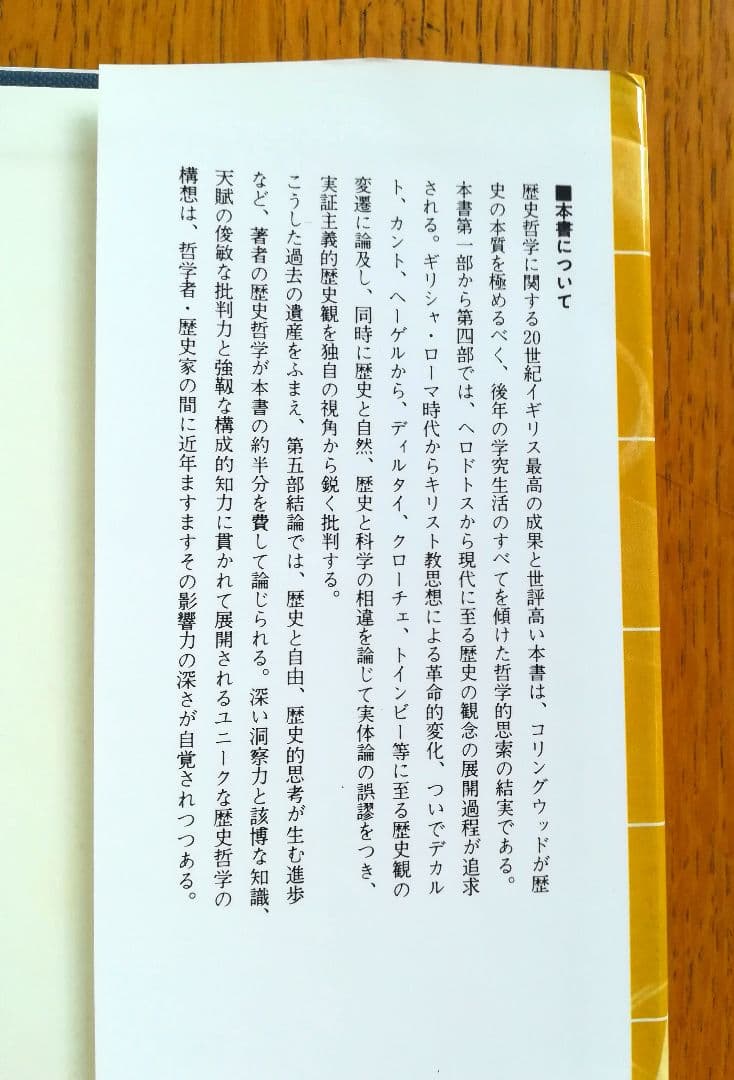 ■本書について
歴史哲学に関する20世紀イギリス最高の成果と世評高い本書は、コリングウッドが歴
史の本質を極めるべく、後年の学究生活のすべてを傾けた哲学的思索の結実である。
本書第一部から第四部では、ヘロドトスから現代に至る歴史の観念の展開過程が追求
される。ギリシャ・ローマ時代からキリスト教思想による革命的変化、ついでデカル
ト、カント、ヘーゲルから、ディルタイ、クローチェ、トインビー等に至る歴史観の
変遷に論及し、同時に歴史と自然、歴史と科学の相違を論じて実体論の誤謬をつき、
実証主義的歴史観を独自の視角から鋭く批判する。
こうした過去の遺産をふまえ、第五部結論では、歴史と自由、歴史的思考が生む進歩
など、著者の歴史哲学が本書の約半分を費して論じられる。深い洞察力と該博な知識、
天賦の俊敏な批判力と強靱な構成的知力に貫かれて展開されるユニークな歴史哲学の
構想は、哲学者・歴史家の間に近年ますますその影響力の深さが自覚されつつある。